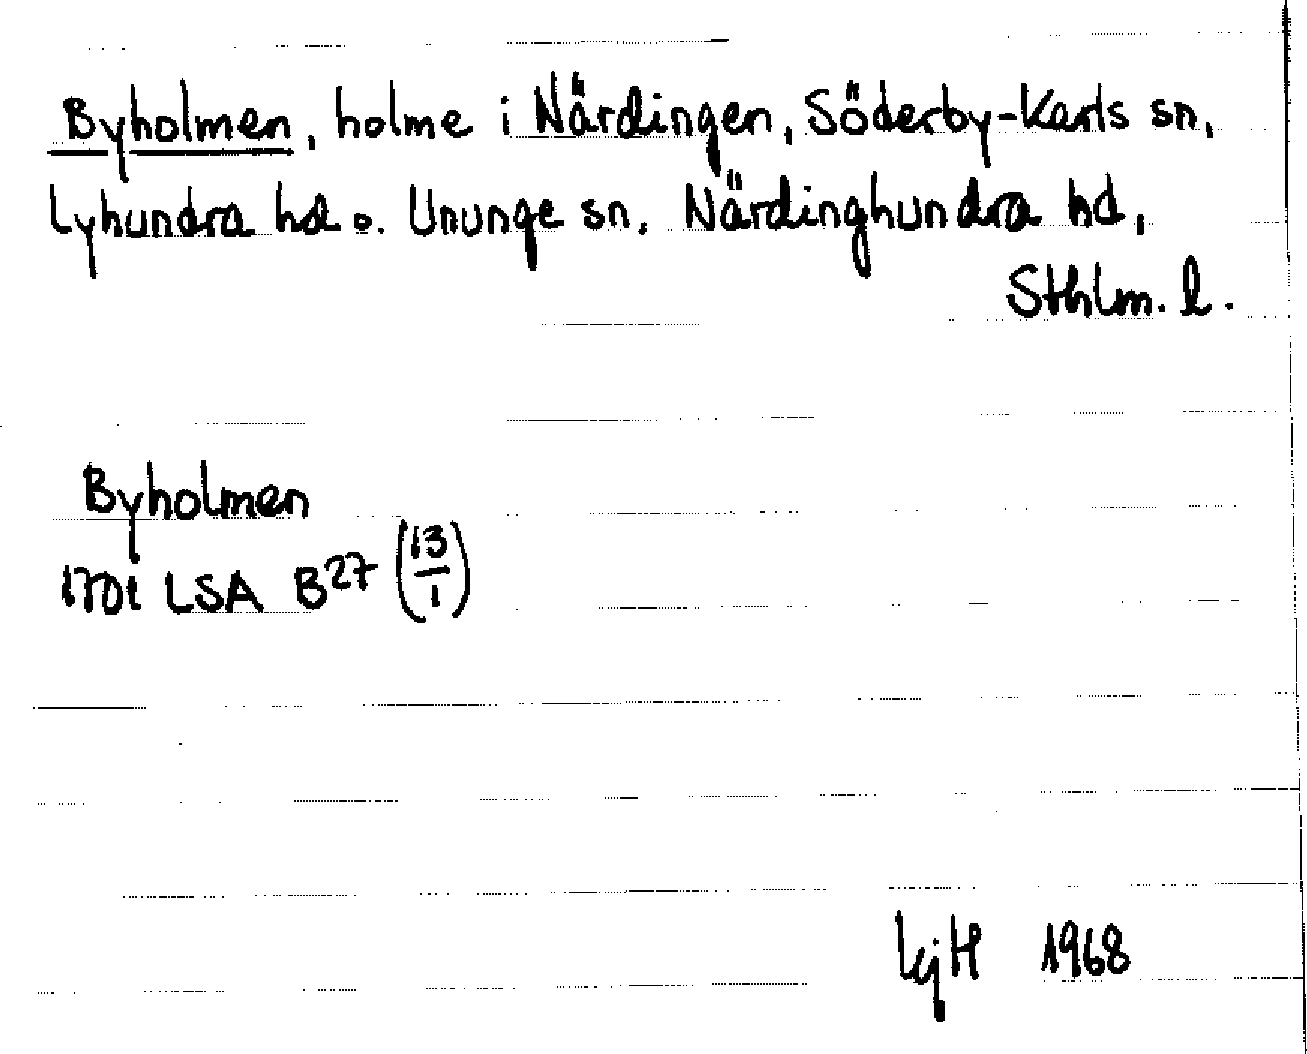 Byholmen, holme i Närdingen, Söderby-Karls sn,
Lyhundra hd o. Ununge sn, Närdinghundra hd,
Sthlm. l.
Byholmen
1701 LSA B27 (13/1)
KjH 1968